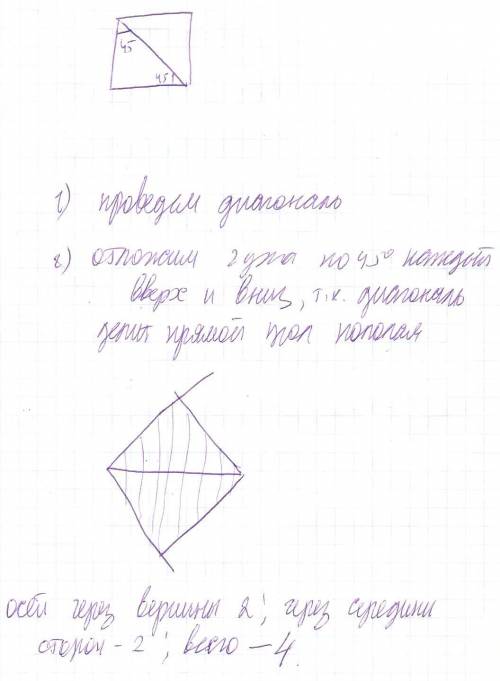 45
45°
1) проведем диагональ
2) отложим 2 угла по 45° каждый
вверх и вниз, т.к. диагональ
делит прямой угол пополам
осей через вершины 2; через середины
сторон - 2; всего - 4.